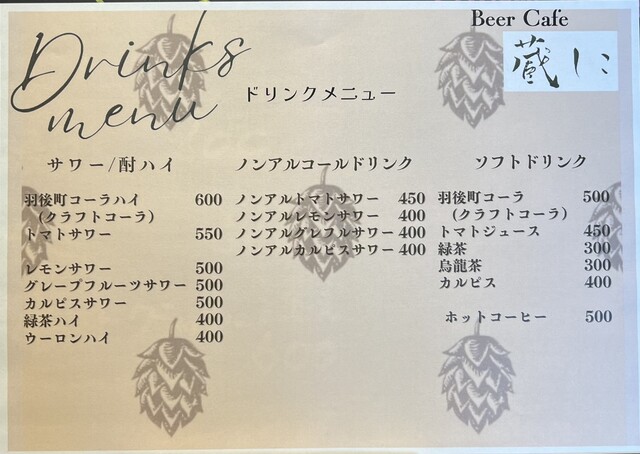 Beer Cafe
蔵しに
Drinks
menu
ドリンクメニュー
サワー/酎ハイ
羽後町コーラハイ 600
(クラフトコーラ)
トマトサワー 550
レモンサワー 500
グレープフルーツサワー 500
カルピスサワー 500
緑茶ハイ 400
ウーロンハイ 400
ノンアルコールドリンク
ノンアルトマトサワー 450
ノンアルレモンサワー 400
ノンアルグレフルサワー 400
ノンアルカルピスサワー 400
ソフトドリンク
羽後町コーラ 500
(クラフトコーラ)
トマトジュース 450
緑茶 300
烏龍茶 300
カルピス 400
ホットコーヒー 500